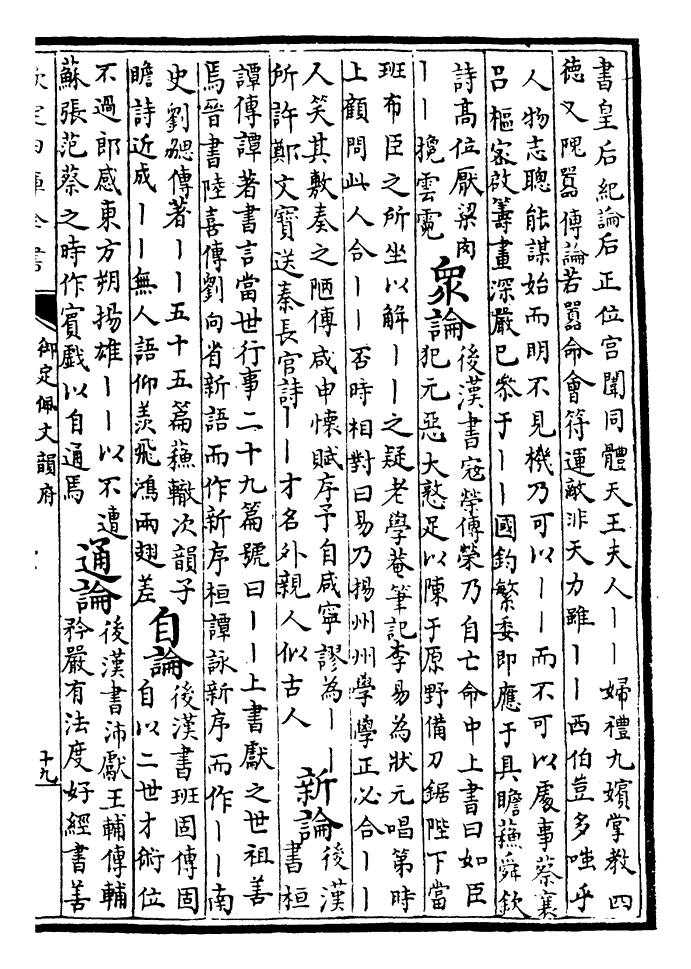 書皇后紀論后正位宮闈同體天王夫人丨丨婦禮九嬪掌教四
德又隗囂傳論若囂命會符運敵非天力雖丨丨西伯豈多嗤乎
人物志聰能謀始而明不見機乃可以丨丨而不可以處事蔡襄
呂樞密啟籌畫深嚴已參于丨丨國鈞繁委即應于具瞻蘇舜欽
詩髙位厭粱肉
丨丨攙雲霓
衆論
後漢書寇榮傳榮乃自亡命中上書曰如臣
犯元惡大憝足以陳于原野備刀鋸陛下當
班布臣之所坐以解丨丨之疑老學菴筆記李易為狀元唱第時
上顧問此人合丨丨否時相對曰易乃揚州州學學正必合丨丨
人笑其敷奏之陋傅咸申懷賦序予自咸寧謬為丨丨
所許鄭文寶送秦長官詩丨丨才名外親人似古人
新論
後漢
書桓
譚傳譚著書言當世行事二十九篇號曰丨丨上書獻之世祖善
焉晉書陸喜傳劉向省新語而作新序桓譚詠新序而作丨丨南
史劉勰傳著丨丨五十五篇蘇轍次韻子
瞻詩近成丨丨無人語仰羨飛鴻兩翅差
自論
後漢書班固傳固
自以二世才術位
不過郎感東方朔揚雄丨丨以不遭
蘇張范蔡之時作賓戲以自通焉
通論
後漢書沛獻王輔傳輔
矜嚴有法度好經書善
欽定四庫全書
御定佩文韻府
十九